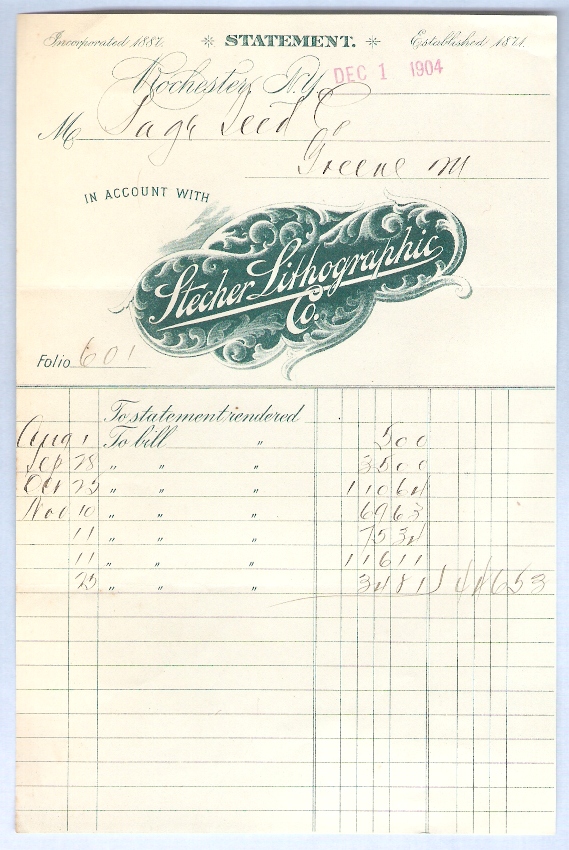 Incorporated 1887. STATEMENT. Established 1871.
Rochester, N.Y. DEC 1 1904
M Page Seed Co
Greene
IN ACCOUNT WITH
Stecher Lithographic Co.
Folio 601
To statement rendered
Aug 1 To bill " 5 00
Sep 28 " " " 35 00
Oct 25 " " " 110 64
Nov 10 " " " 69 63
11 " " " 75 34
11 " " " 116 11
25 " " " 34 81 446 53